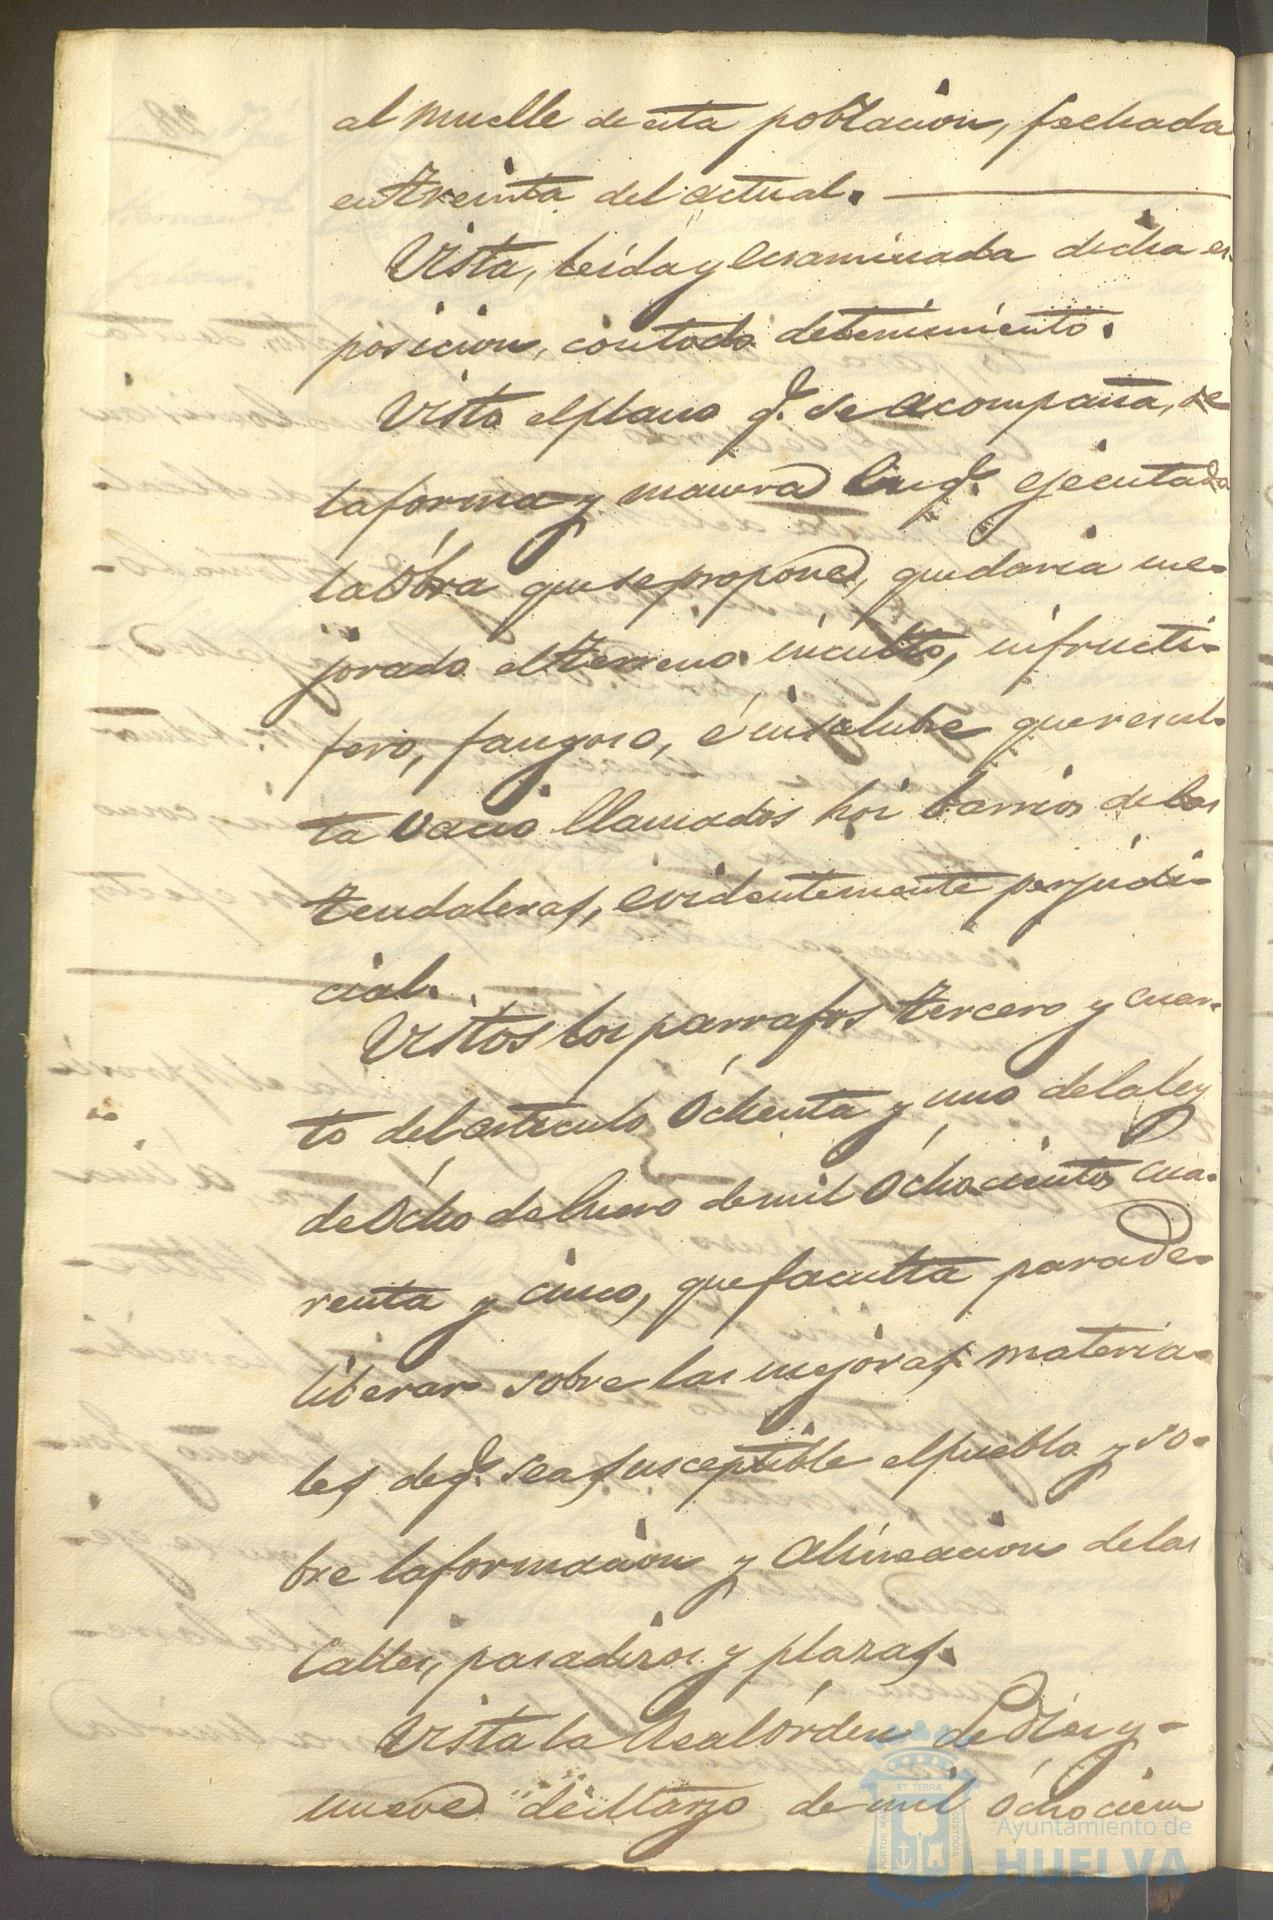 al muelle de esta poblacion, fechada
en treinta del actual.
Vista, leida y ecsaminada dicha es-
posicion, con todo detenimiento.
Visto el plano q.e se acompaña, de
la forma y manera en q.e ejecutada
la Óbra que se propone, quedaria me-
jorado el terreno inculto, infructi-
fero, fangoso, é insalubre que resul-
ta vacio llamados hoi barrios de las
tendaleras, evidentemente perjudi-
cial.
Vistos los parrafos tercero y cuar-
to del articulo Óchenta y uno de la ley
de Ócho de Enero de mil Óchocientos cua-
renta y cinco, que faculta para de-
liberar sobre las mejoras materia-
les de q.e sea susceptible el pueblo y so-
bre la formacion y alineacion de las
Calles, pasadizos y plazas.
Vista la Real órden de Diez y-
nueve de Marzo de mil óchocien
Ayuntamiento de
HUELVA